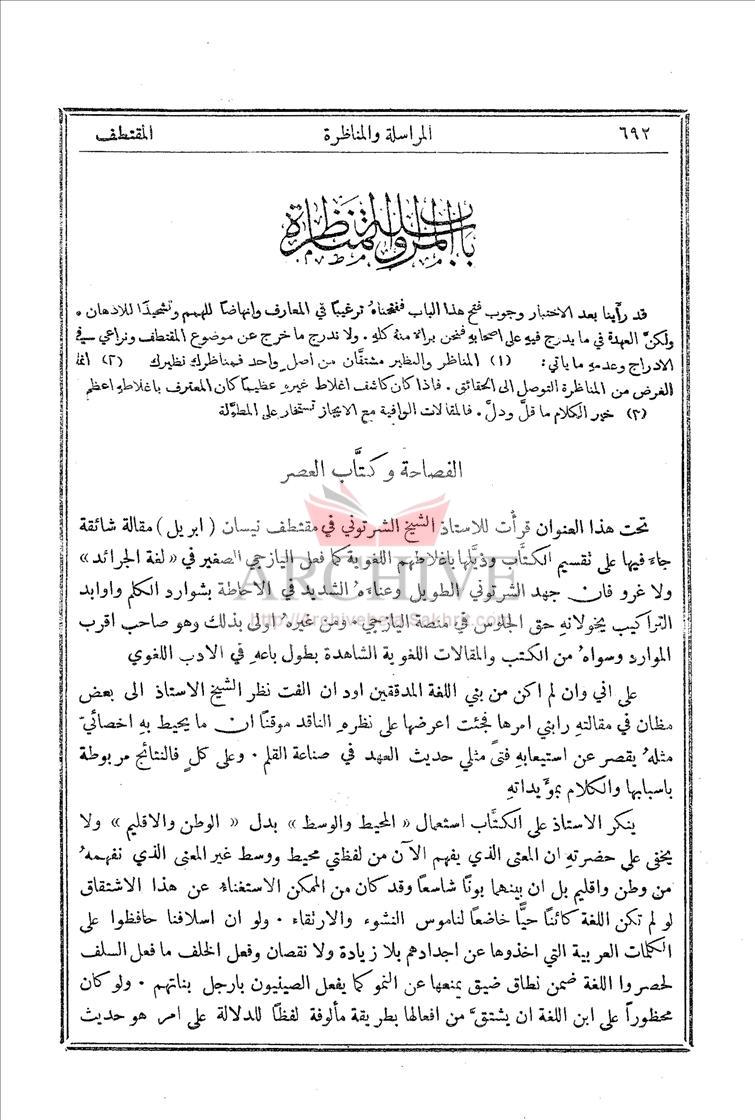 ٦٩٢ المراسلة والمناظرة المقتطف
باب المراسلة والمناظرة
قد رأينا بعد الاختبار وجوب فتح هذا الباب ففتحناهُ ترغيبًا في المعارف وانهاضًا للهمم وتشحيذًا للاذهان .
ولكنَّ العهدة في ما يدرج فيهِ على اصحابهِ فنحن براء منهُ كلهِ . ولا ندرج ما خرج عن موضوع المقتطف ونراعي في
الادراج وعدمهِ ما ياتي : (١) المناظر والنظير مشتقَّان من اصل واحد فمناظرك نظيرك (٢) انما
الغرض من المناظرة التوصل الى الحقائق . فاذا كان كاشف اغلاط غيرهِ عظيمًا كان المعترف باغلاطهِ اعظم
(٣) خير الكلام ما قلَّ ودلَّ . فالمقالات الوافية مع الايجاز تستخار على المطوَّلة
الفصاحة وكتَّاب العصر
تحت هذا العنوان قرأت للاستاذ الشيخ الشرتوني في مقتطف نيسان ( ابريل ) مقالة شائقة
جاءَ فيها على تقسيم الكتَّاب وذيَّلها باغلاطهم اللغوية كما فعل اليازجي الصغير في « لغة الجرائد »
ولا غرو فان جهد الشرتوني الطويل وعناءَهُ الشديد في الاحاطة بشوارد الكلم واوابد
التراكيب يخولانهِ حق الجلوس في منصة اليازجي . ومن غيرهُ اولى بذلك وهو صاحب اقرب
الموارد وسواهُ من الكتب والمقالات اللغوية الشاهدة بطول باعهِ في الادب اللغوي
على اني وان لم اكن من بني اللغة المدققين اود ان الفت نظر الشيخ الاستاذ الى بعض
مظان في مقالتهِ رابني امرها فجئت اعرضها على نظرهِ الناقد موقنًا ان ما يحيط بهِ اخصائيّ
مثلهُ يقصر عن استيعابهِ فتىً مثلي حديث العهد في صناعة القلم . وعلى كلٍ فالنتائج مربوطة
باسبابها والكلام بمؤيداتهِ
ينكر الاستاذ على الكتَّاب استعمال « المحيط والوسط » بدل « الوطن والاقليم » ولا
يخفى على حضرتهِ ان المعنى الذي يفهم الآن من لفظتي محيط ووسط غير المعنى الذي نفهمهُ
من وطن واقليم بل ان بينهما بونًا شاسعًا وقد كان من الممكن الاستغناءُ عن هذا الاشتقاق
لو لم تكن اللغة كائنًا حيًّا خاضعًا لناموس النشوء والارتقاء . ولو ان اسلافنا حافظوا على
الكلمات العربية التي اخذوها عن اجدادهم بلا زيادة ولا نقصان وفعل الخلف ما فعل السلف
لحصروا اللغة ضمن نطاق ضيق يمنعها عن النمو كما يفعل الصينيون بارجل بناتهم . ولو كان
محظورًا على ابن اللغة ان يشتقَّ من افعالها بطريقة مألوفة لفظًا للدلالة على امر هو حديث
ARCHIVE
http://Archivebeta.Sakhrit.com